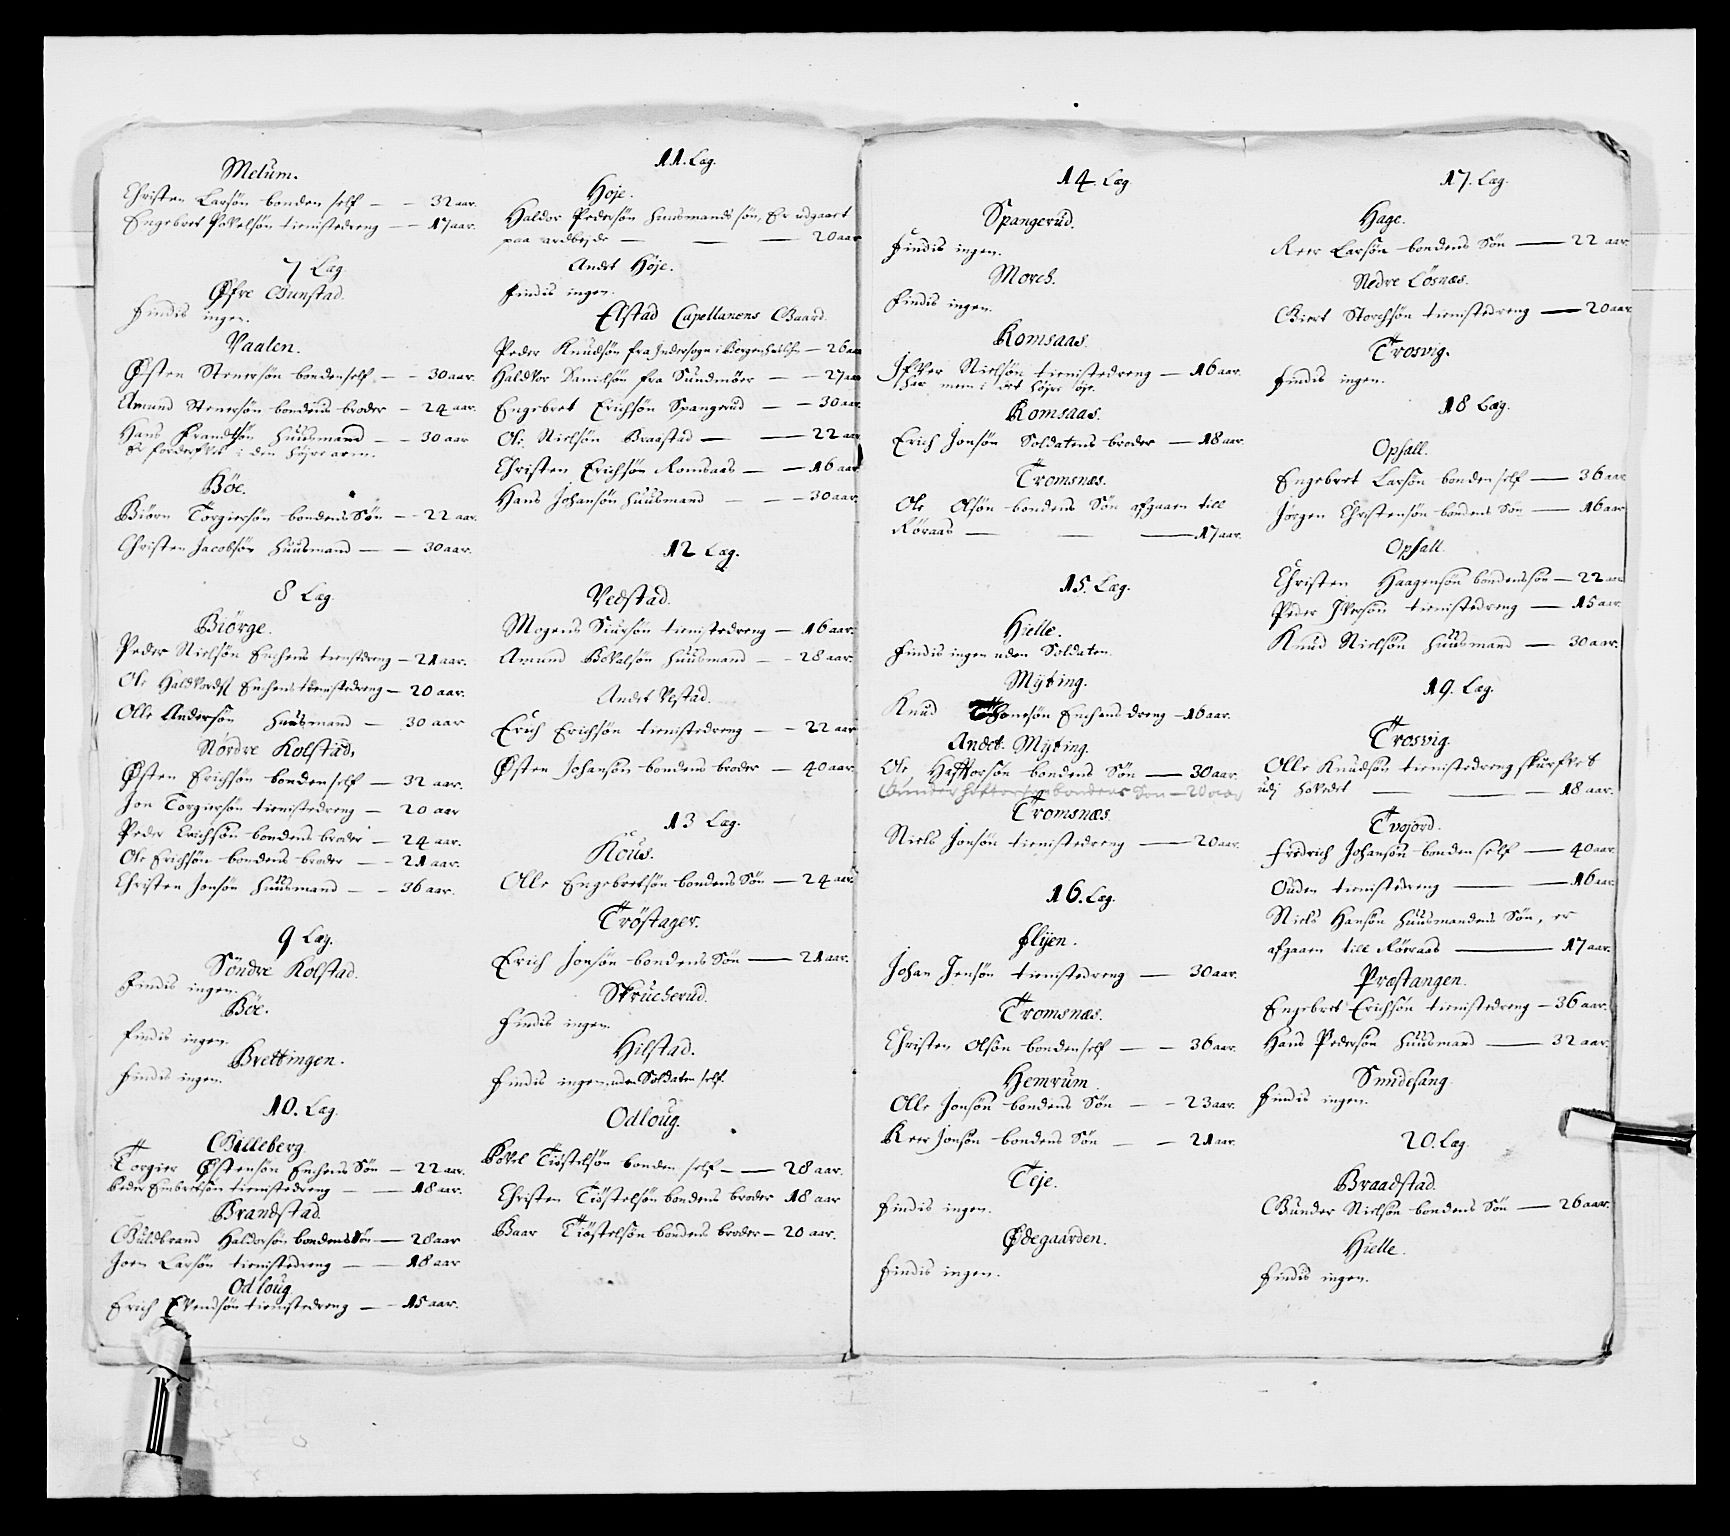 Melum.
Christen Larsön bonden self — — 32 aar.
Engebret Povelsön tienistedreng — — 17 aar.
7 Læg.
Øfre Gunstad.
Findis ingen.
Vaalen.
Østen Stenersön bonden self — — 30 aar.
Amund Stenersön bondens broder — 24 aar.
Hans Frandtsön huusmand — — 30 aar
Er forderfvet i den höjre arm.
Böe.
Biörn Torgiersön bondens Sön — — 22 aar.
Christen Jacobsön huusmand — — 30 aar.
8 Læg.
Biörge.
Peder Nielsön Enchens tienistdreng — 21 aar.
Ole Haldvords: Enchens tienistedreng — 20 aar.
Olle Andersön huusmand — 30 aar
Nördre Kolstad.
Østen Erichsön bonden self — — 32 aar.
Jon Torgiersön tienistedreng — 20 aar
Peder Erichsön bondens broder — 24 aar.
Ole Erichsön bondens broder — — 21 aar.
Christen Jonsön huusmand — — 36 aar.
9 Læg.
Söndre Kolstad.
Findis ingen.
Böe.
Findis ingen.
Brettingen.
Findis ingen.
10. Læg.
Gilleberg.
Torgier Østensön Enchens Sön — 22 aar.
Peder Embretsön tienistedreng — — 18 aar.
Brandstad.
Guldbrand Haldorsön bondens Sön — 28 aar
Joen Larsön tienistedreng — — 18 aar
Odloug.
Erich Evensön tienistedreng — — 15 aar.
11. Læg.
Höje.
Haldor Pedersön huusmands sön, Er udgaaet
paa ardbejde — — — 20 aar
Andet Höje.
Findis ingen.
Elstad Capellanens Gaard.
Peder Knudsön fra Indersogn i Bergenhuus — 26 aar
Haldvor Danilsön fra Sundmöer — — 27 aar
Engebret Erichsön Spangerud — — 30 aar.
Ole Nielsön Braastad — — 22 aar
Christen Erichsön Romsaas — — 16 aar
Hans Johansön huusmand — — 30 aar.
12 Læg.
Vedstad.
Mogens Siursön tienistedreng — 16 aar.
Amund Bovelsön huusmand — — 28 aar.
Andet Vestad.
Erich Erichsön tienistedreng — — 22 aar
Østen Johansön bondens broder — 40 aar.
13 Læg.
Kous.
Olle Engebretsön bondens Sön — 24 aar.
Tröstager.
Erich Jonsön bondens Sön — 21 aar.
Strucherud.
Findis ingen.
Hilstad.
Findis ingen uden Soldaten self.
Odloug.
Povel Tiöstelsön bonden self — — 28 aar.
Christen Tiöstelsön bondens broder 18 aar
Baar Tiöstelsön bondens broder — 20 aar.
14. Læg.
Spangerud.
Findis ingen.
Morch.
Findis ingen.
Romsaas.
Ifver Nielsön tienistedreng — 16 aar.
har meen i det höjre öje.
Romsaas.
Erich Jonsön Soldatens broder — 18 aar.
Tromsnæs.
Ole Olsön bondens Sön afgaaen till
Röraas — — — 17 aar.
15. Læg.
Hielle.
Findis ingen uden Soldaten.
Myting.
Knud Tostensön Enchens dreng — 16 aar.
Andet Myting.
Ole Hafftorsön bondens Sön — 30 aar.
Gunder Haftorsön bondens Sön — 20 aar
Tromsnæs.
Niels Jonsön tienistedreng — 20 aar.
16. Læg.
Flyen.
Johan Jensön tienistedreng — 30 aar.
Tromsnæs.
Christen Olsön bonden self — — 36 aar.
Hemrum.
Olle Jonsön bondens Sön — — 23 aar.
Reer Jonsön bondens Sön — — 21 aar.
Teje.
Findis ingen.
Ødegaarden.
Findis ingen.
17. Læg.
Hage.
Reer Larsön bondens Sön — 22 aar.
Nedre Lösnæs.
Giert Storchsön tienistedreng — 20 aar
Trosvig.
Findis ingen.
18 Læg.
Opsall.
Engebret Larsön bonden self — 36 aar
Jörgen Christensön bondens Sön — 16 aar
Opsall.
Christen Haagensön bondens sön — 22 aar
Peder Iversön tienistedreng — 15 aar.
Knud Nielsön huusmand — 30 aar.
19. Læg.
Trosvig.
Olle Knudsön tienistedreng skurfvet
udj hovedet — — — 18 aar.
Tvojord.
Fredrich Johansön bonden self — 40 aar
Ouden tienistedreng — — 16 aar.
Niels Hansön huusmandens Sön, er
afgaaen till Röeraas — 17 aar.
Præstangen.
Engebret Erichsön tienistedreng — 36 aar.
Hans Pedersön huusmand — 32 aar.
Sundesang.
Findis ingen.
20. Læg.
Braadstad.
Gunder Nielsön bondens Sön — 26 aar.
Hielle.
Findis ingen.